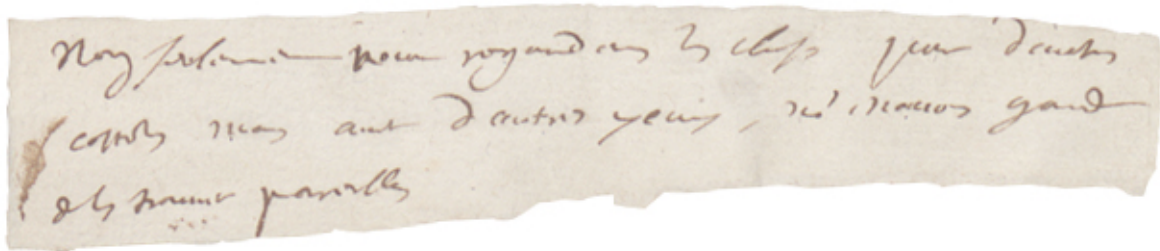 Non seulement nous regardons les choses par d'autres
costés mais avec d'autres yeux, ns n'avons garde
de les trouver pareilles